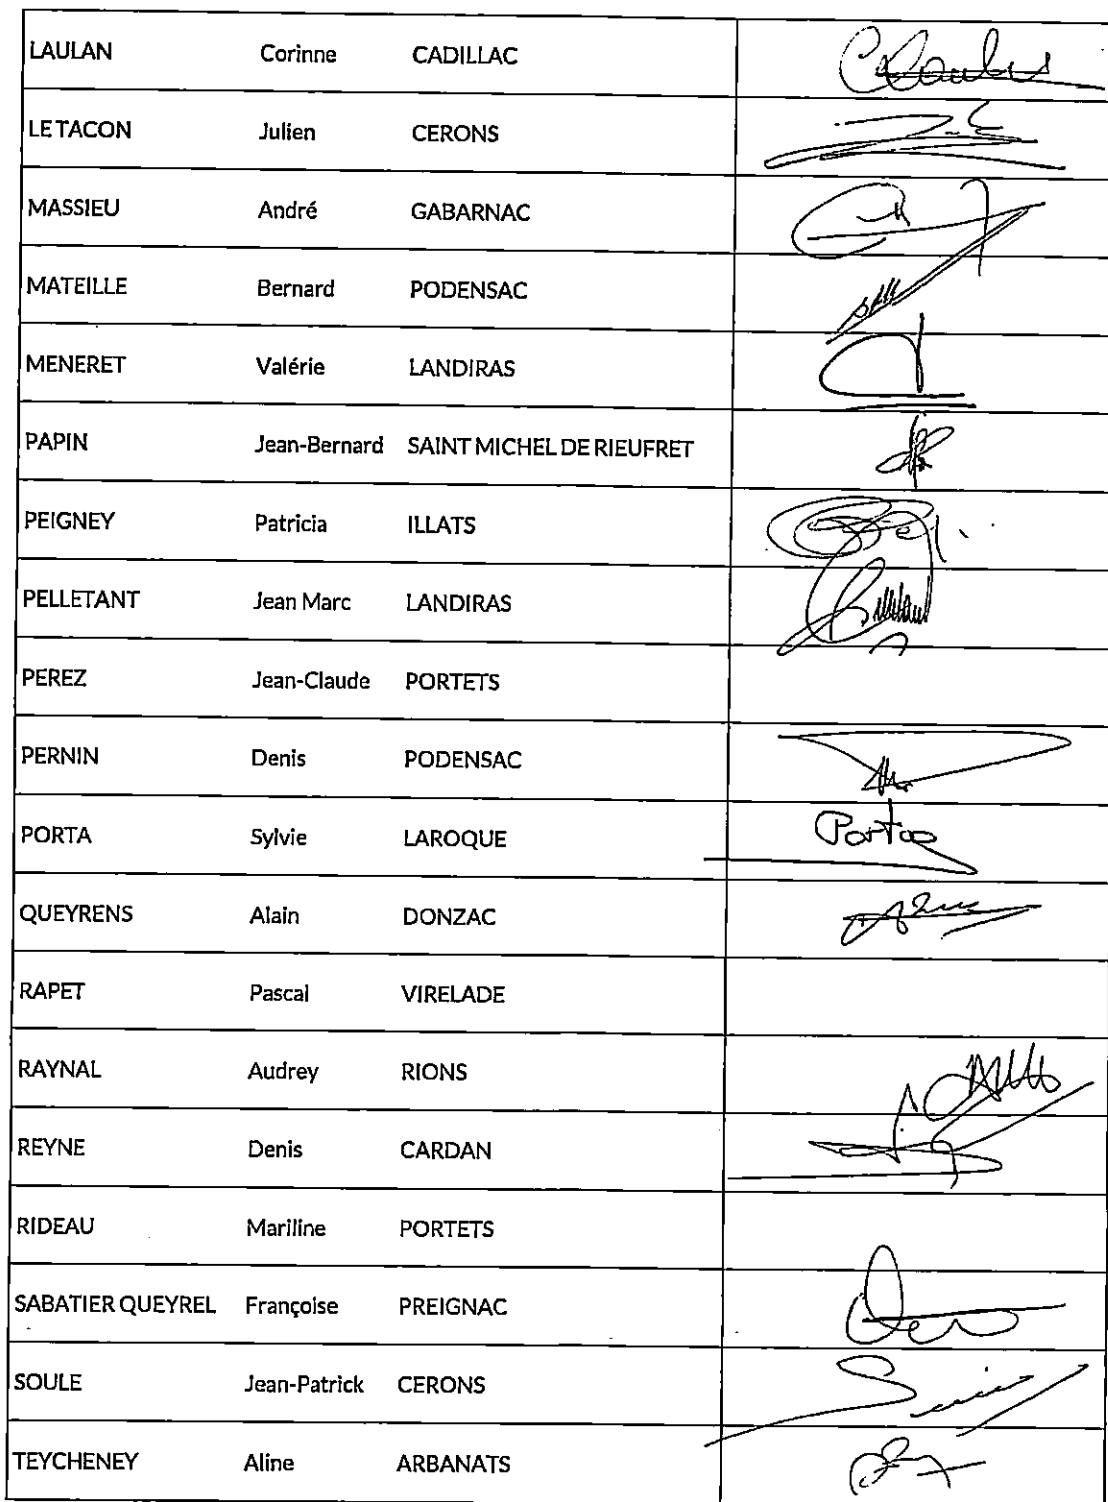 LAULAN Corinne CADILLAC
LETACON Julien CERONS
MASSIEU André GABARNAC
MATEILLE Bernard PODENSAC
MENERET Valérie LANDIRAS
PAPIN Jean-Bernard SAINT MICHEL DE RIEUFRET
PEIGNEY Patricia ILLATS
PELLETANT Jean Marc LANDIRAS
PEREZ Jean-Claude PORTETS
PERNIN Denis PODENSAC
PORTA Sylvie LAROQUE Porta
QUEYRENS Alain DONZAC
RAPET Pascal VIRELADE
RAYNAL Audrey RIONS
REYNE Denis CARDAN
RIDEAU Mariline PORTETS
SABATIER QUEYREL Françoise PREIGNAC
SOULE Jean-Patrick CERONS
TEYCHENEY Aline ARBANATS